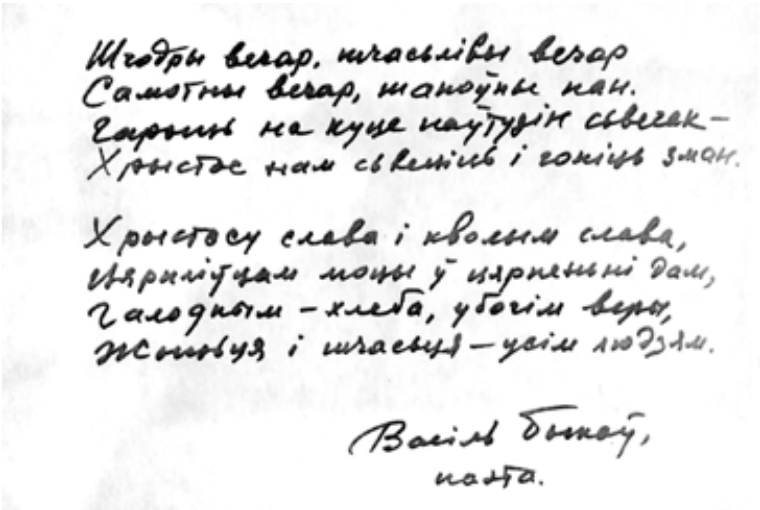 Шчодры вечар, шчасьлівы вечар
Самотны вечар, шаноўны пан.
Гараць на куце паўтузін сьвечак —
Хрыстос нам сьвеціць і гоніць зман.
Хрыстосу слава і кволым слава,
Цярпліўцам моцы ў цярпеньні дам,
Галодным — хлеба, убогім веры,
Жыцьця і шчасьця — усім людзям.
Васіль Быкаў,
паэта.